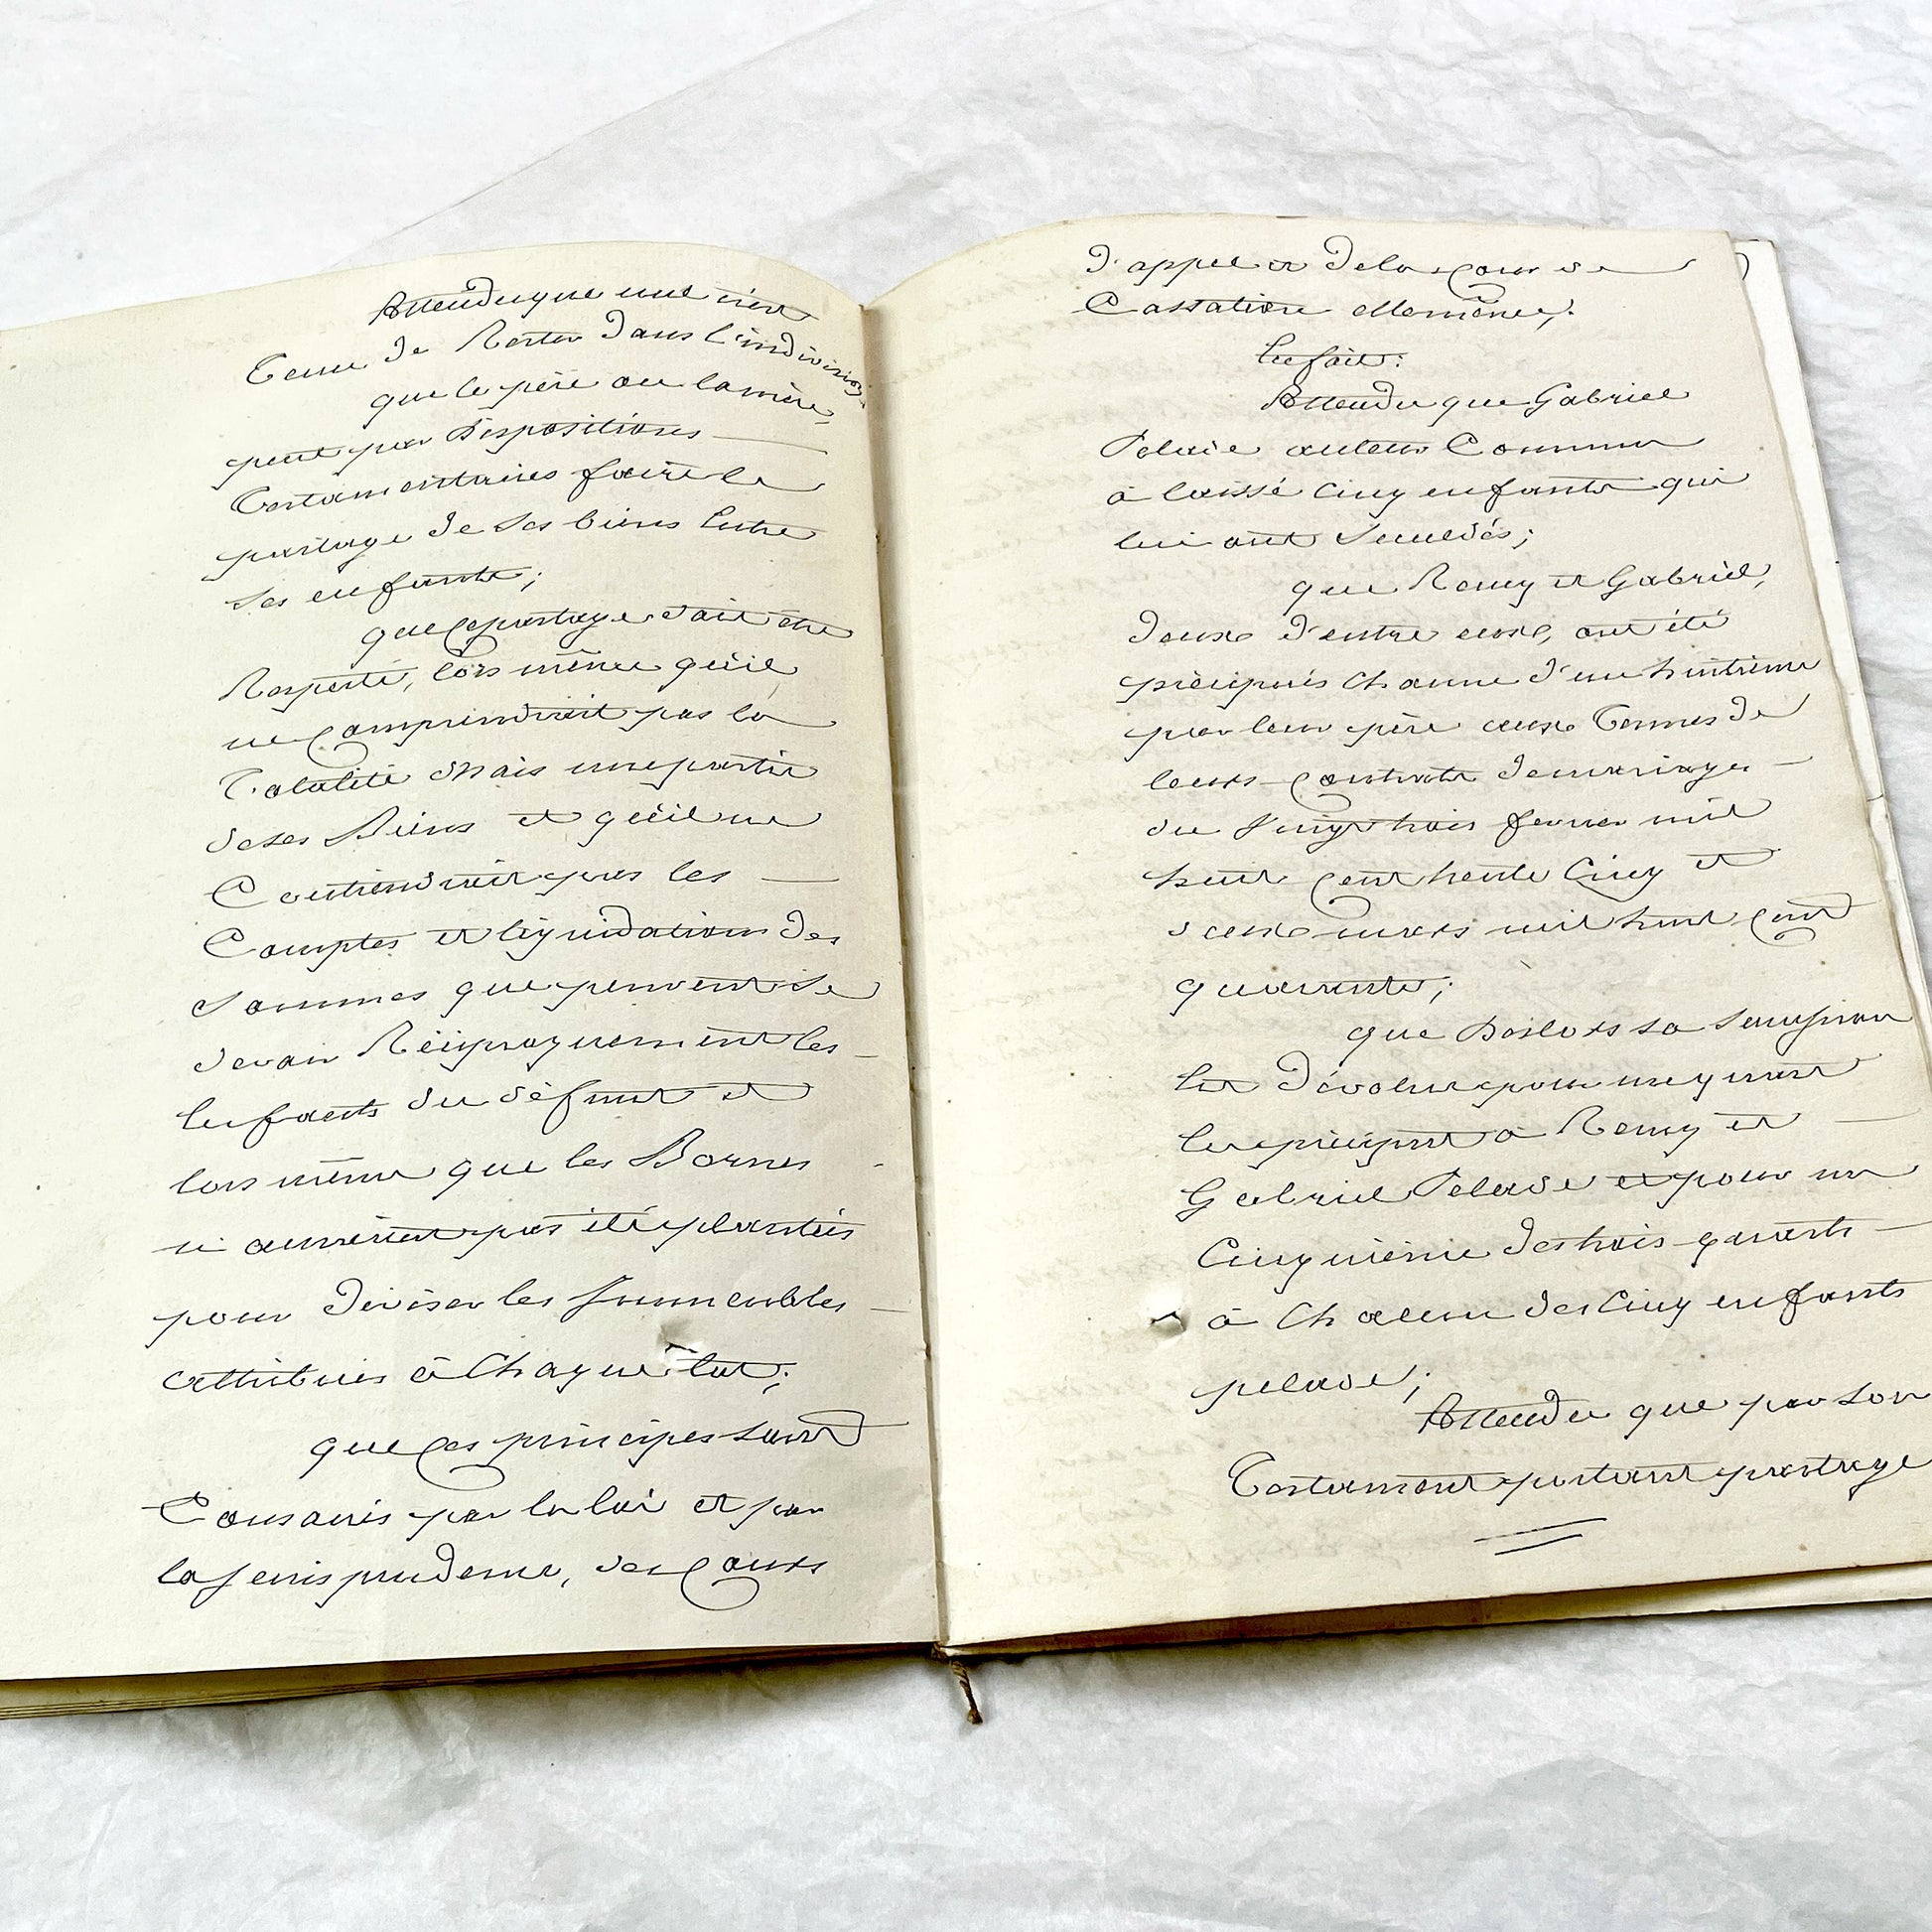 Attendu que nul n'est
tenu de Rester dans l'indivision,
que le père ou la mère,
peut par Dispositions
Testamentaires faire le
partage de ses biens Entre
ses enfants;
que ce partage doit être
Respecté, lors même qu'il
ne Comprendrait pas la
Totalité Mais une partie
de ses Biens et qu'il ne
Contiendrait pas les
Comptes et liquidations des
Sommes que peuvent se
devoir Réciproquement les
Enfants du défunt et
lors même que les Bornes
n'auraient pas été plantées
pour Diviser les Immeubles
attribués à Chaque lot;
que ces principes sont
Consacrés par la loi et par
la Jurisprudence, des Cours
D'appel et De la Cour de
Cassation elle même;
En fait:
Attendu que Gabriel
Pelade auteur Commun
à laissé Cinq enfants qui
lui ont Succédés;
que Remy et Gabriel,
Deux D'entre eux, ont été
précipués Chacun d'un huitième
par leur père aux Termes De
leurs Contrats De mariage
du Vingt trois fevrier mil
huit Cent trente Cinq et
deux mars mil huit Cent
quarante;
que Dès lors sa Succession
Est Dévolue pour un quart
En préciput à Remy et
Gabriel Pelade et pour un
Cinquième Des trois quarts
à Chacun des Cinq enfants
pelade;
Attendu que par son
Testament portant partage